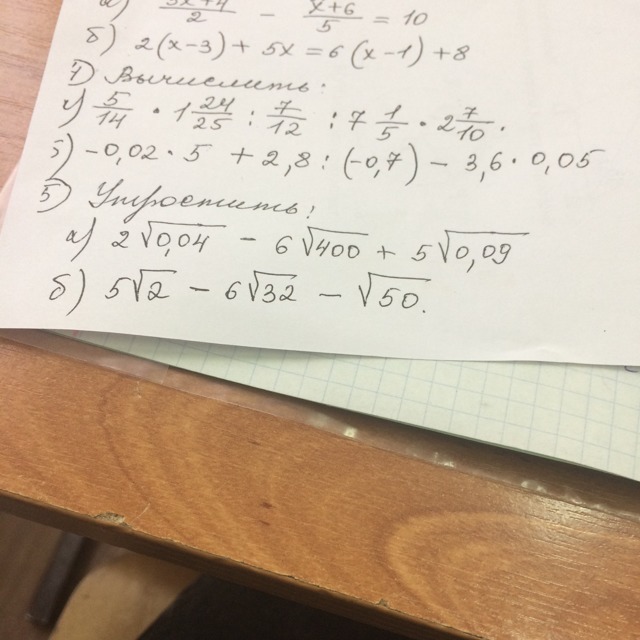 а) (3x+4)/2 − (x+6)/5 = 10
б) 2(x−3) + 5x = 6(x−1) + 8
4) Вычислить:
а) 5/14 · 1 24/25 : 7/12 : 7 1/5 · 2 7/10.
б) −0,02 · 5 + 2,8 : (−0,7) − 3,6 · 0,05
5) Упростить:
а) 2√0,04 − 6√400 + 5√0,09
б) 5√2 − 6√32 − √50.